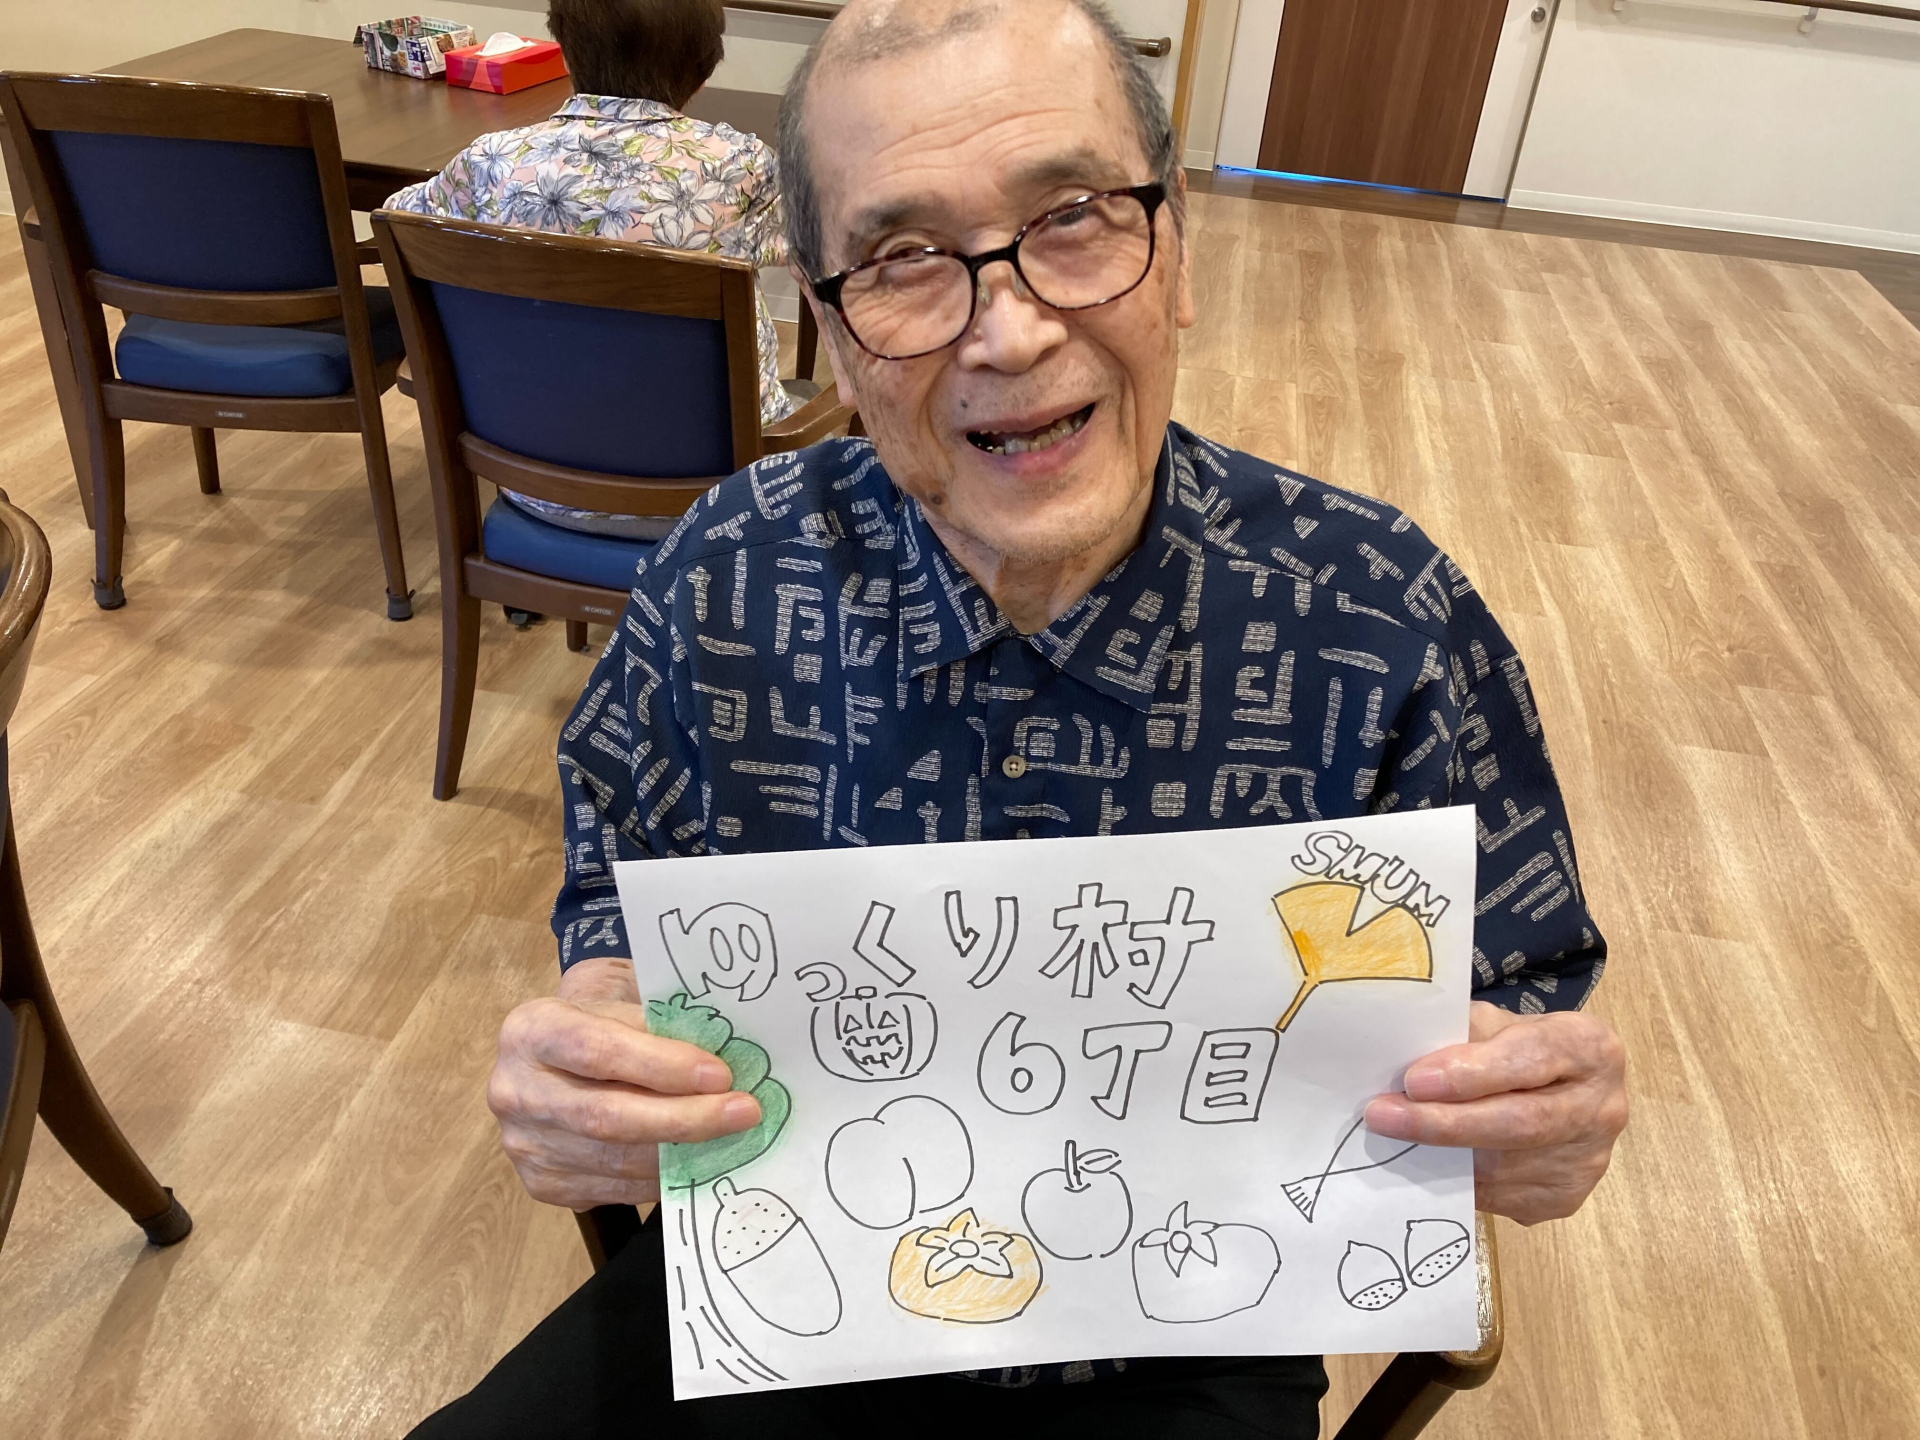 SMUM
ゆっくり村
6丁目